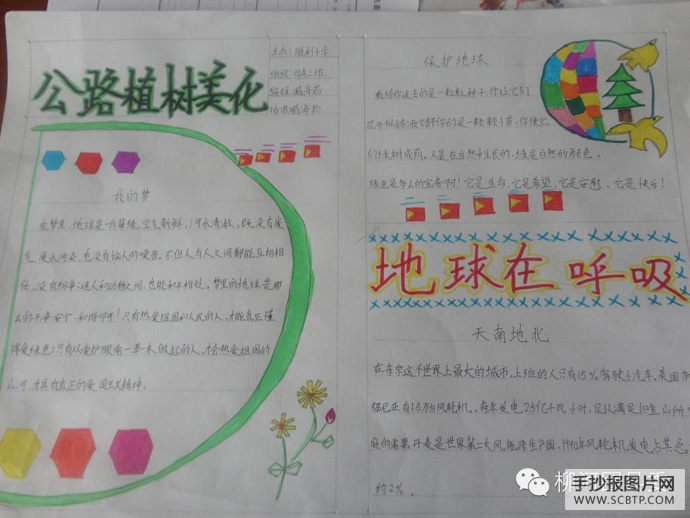 公路植树美化
主办:胜利小学
班级:四年二班
我的梦
在梦里,地球是一片翠绿,空气新鲜,河水清澈,既没有废
气、废水污染,也没有恼人的噪音。不但人与人之间都能互相相
信,没有纷争;连人和动物之间,也能和平相处。梦里的地球是那
么的平安宁和谐呀!只有热爱祖国和人民的人,才能真正懂
得爱绿色;只有从爱护眼前一草一木做起的人,才会热爱祖国的
山河,才具有真正的爱国主义精神。
保护地球
我给你送去的是一粒粒种子,你让它们
花开似锦;我付给你的是一棵棵小苗,你使它
们绿树成荫。人是在自然中生长的,绿是自然的颜色。
绿色是多人的宝贵啊!它是生命,它是希望,它是安慰,它是快乐!
地球在呼吸
天南地北
在东京这个世界上最大的城市,上班的人只有15%驾驶小汽车。美国
现已有1.5万台风轮机,每年发电25亿千瓦小时,足以满足旧金山所
庭的需要。丹麦是世界第二大风能源生产国,1990年风轮机发电占其总
约2%。
手抄报图片网
WWW.SCBTP.COM